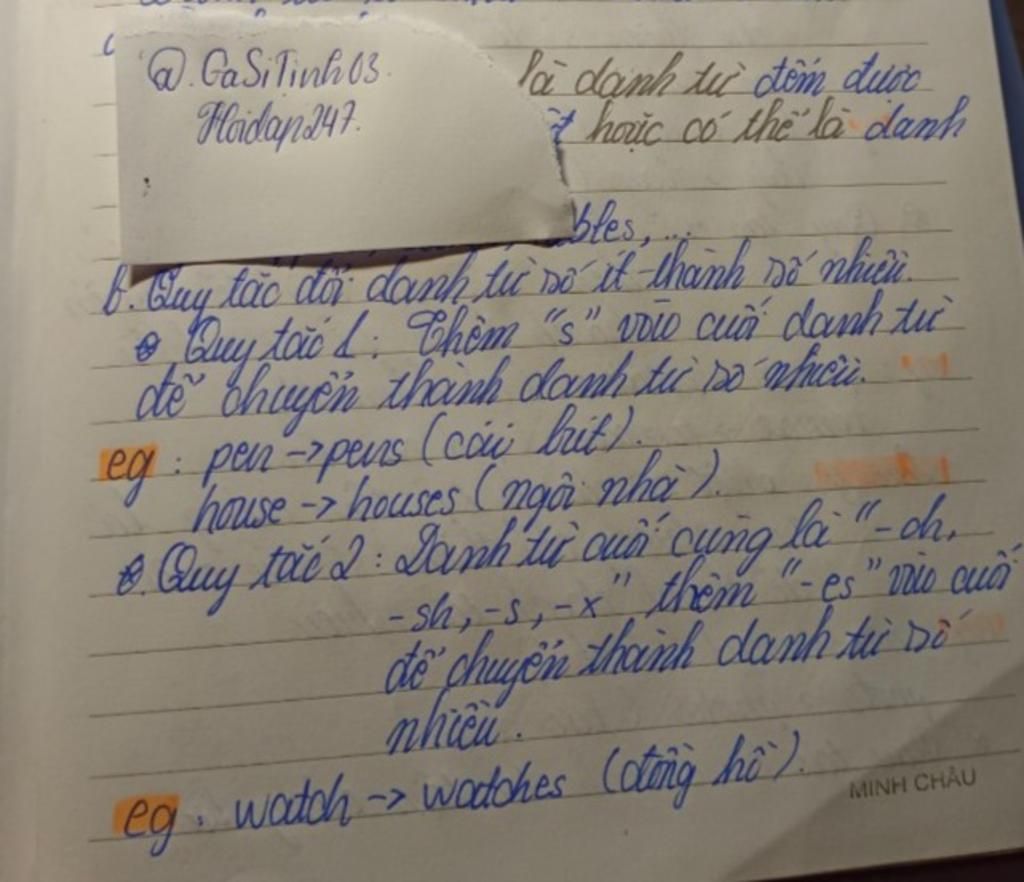 @. GaSiTinh03.
Hoidap247.
là danh từ đếm được
hoặc có thể là danh
bles, ...
b. Quy tắc đổi danh từ số ít thành số nhiều.
Quy tắc 1: Thêm "s" vào cuối danh từ
để chuyển thành danh từ số nhiều.
eg: pen -> pens (cái bút).
house -> houses (ngôi nhà).
Quy tắc 2: Danh từ cuối cùng là "-ch,
-sh, -s, -x" thêm "-es" vào cuối
để chuyển thành danh từ số
nhiều.
eg: watch -> watches (đồng hồ).
MINH CHÂU